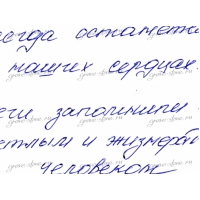 сегда остаетс
наших сердцах.
запомнили
етлым и жизнера
человеком